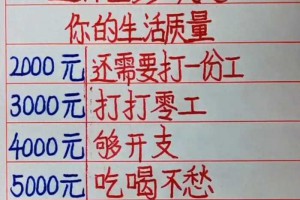 你的生活质量
2000元 还需要打一份工
3000元 打打零工
4000元 够开支
5000元 吃喝不愁